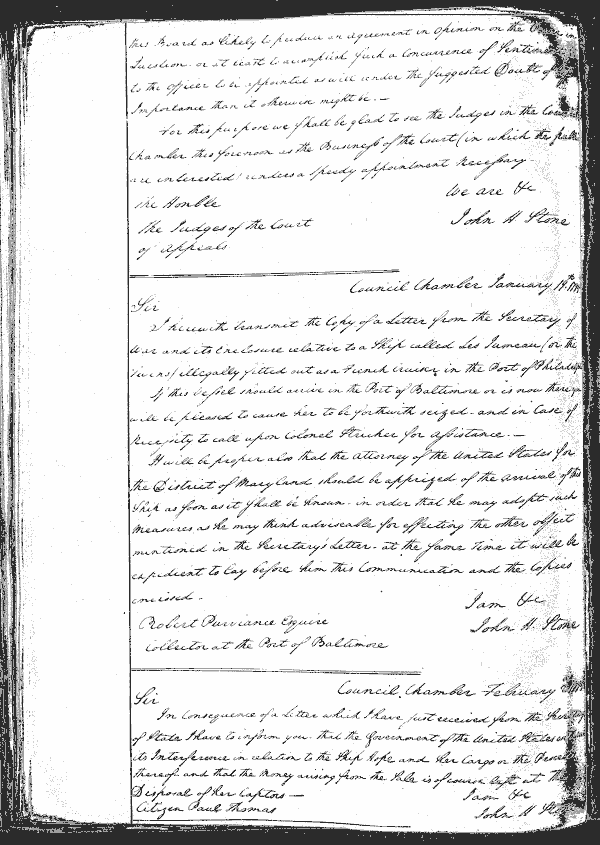 this Board as likely to produce an agreement in opinion on the
Question. or at least to accomplish such a Concurrence of Sentiment
to the officer to be appointed as will render the suggested Doubt of
Importance than it otherwise might be. —
For this purpose we shall be glad to see the Judges in the Council
Chamber this forenoon as the Business of the Court (in which the public
are interested) renders a speedy appointment necessary.
We are &c
The Honble
John H Stone
The Judges of the Court
of Appeals
Council Chamber January
Sir
I herewith transmit the Copy of a Letter from the Secretary of
War and its Enclosure relative to a Ship called Les Jumeau (or the
Twins) illegally fitted out as a French Cruiser in the Port of Philadelp
If this Vessel should arrive in the Port of Baltimore or is now there you
will be pleased to cause her to be forthwith seized. and in Case of
necessity to call upon Colonel Stricker for assistance. —
It will be proper also that the Attorney of the United States for
the District of Maryland should be apprized of the arrival of this
Ship as soon as it shall be known. in order that he may adopt such
Measures as he may think adviseable for effecting the other object
mentioned in the Secretary's Letter. at the same time it will be
expedient to lay before him this Communication and the Copies
inclosed.
I am &c
Robert Purviance Esquire
John H. Stone
Collector at the Port of Baltimore
Council Chamber February
Sir
In Consequence of a Letter which I have just received from the Secretary
of State I have to inform you. that the Government of the United States
its Interference in relation to the Ship Hope and Her Cargo or the
thereof. and that the Money arising from the Sale is of course left at the
Disposal of her Captors —
I am &c
Citizen Paul Thomas
John H Stone